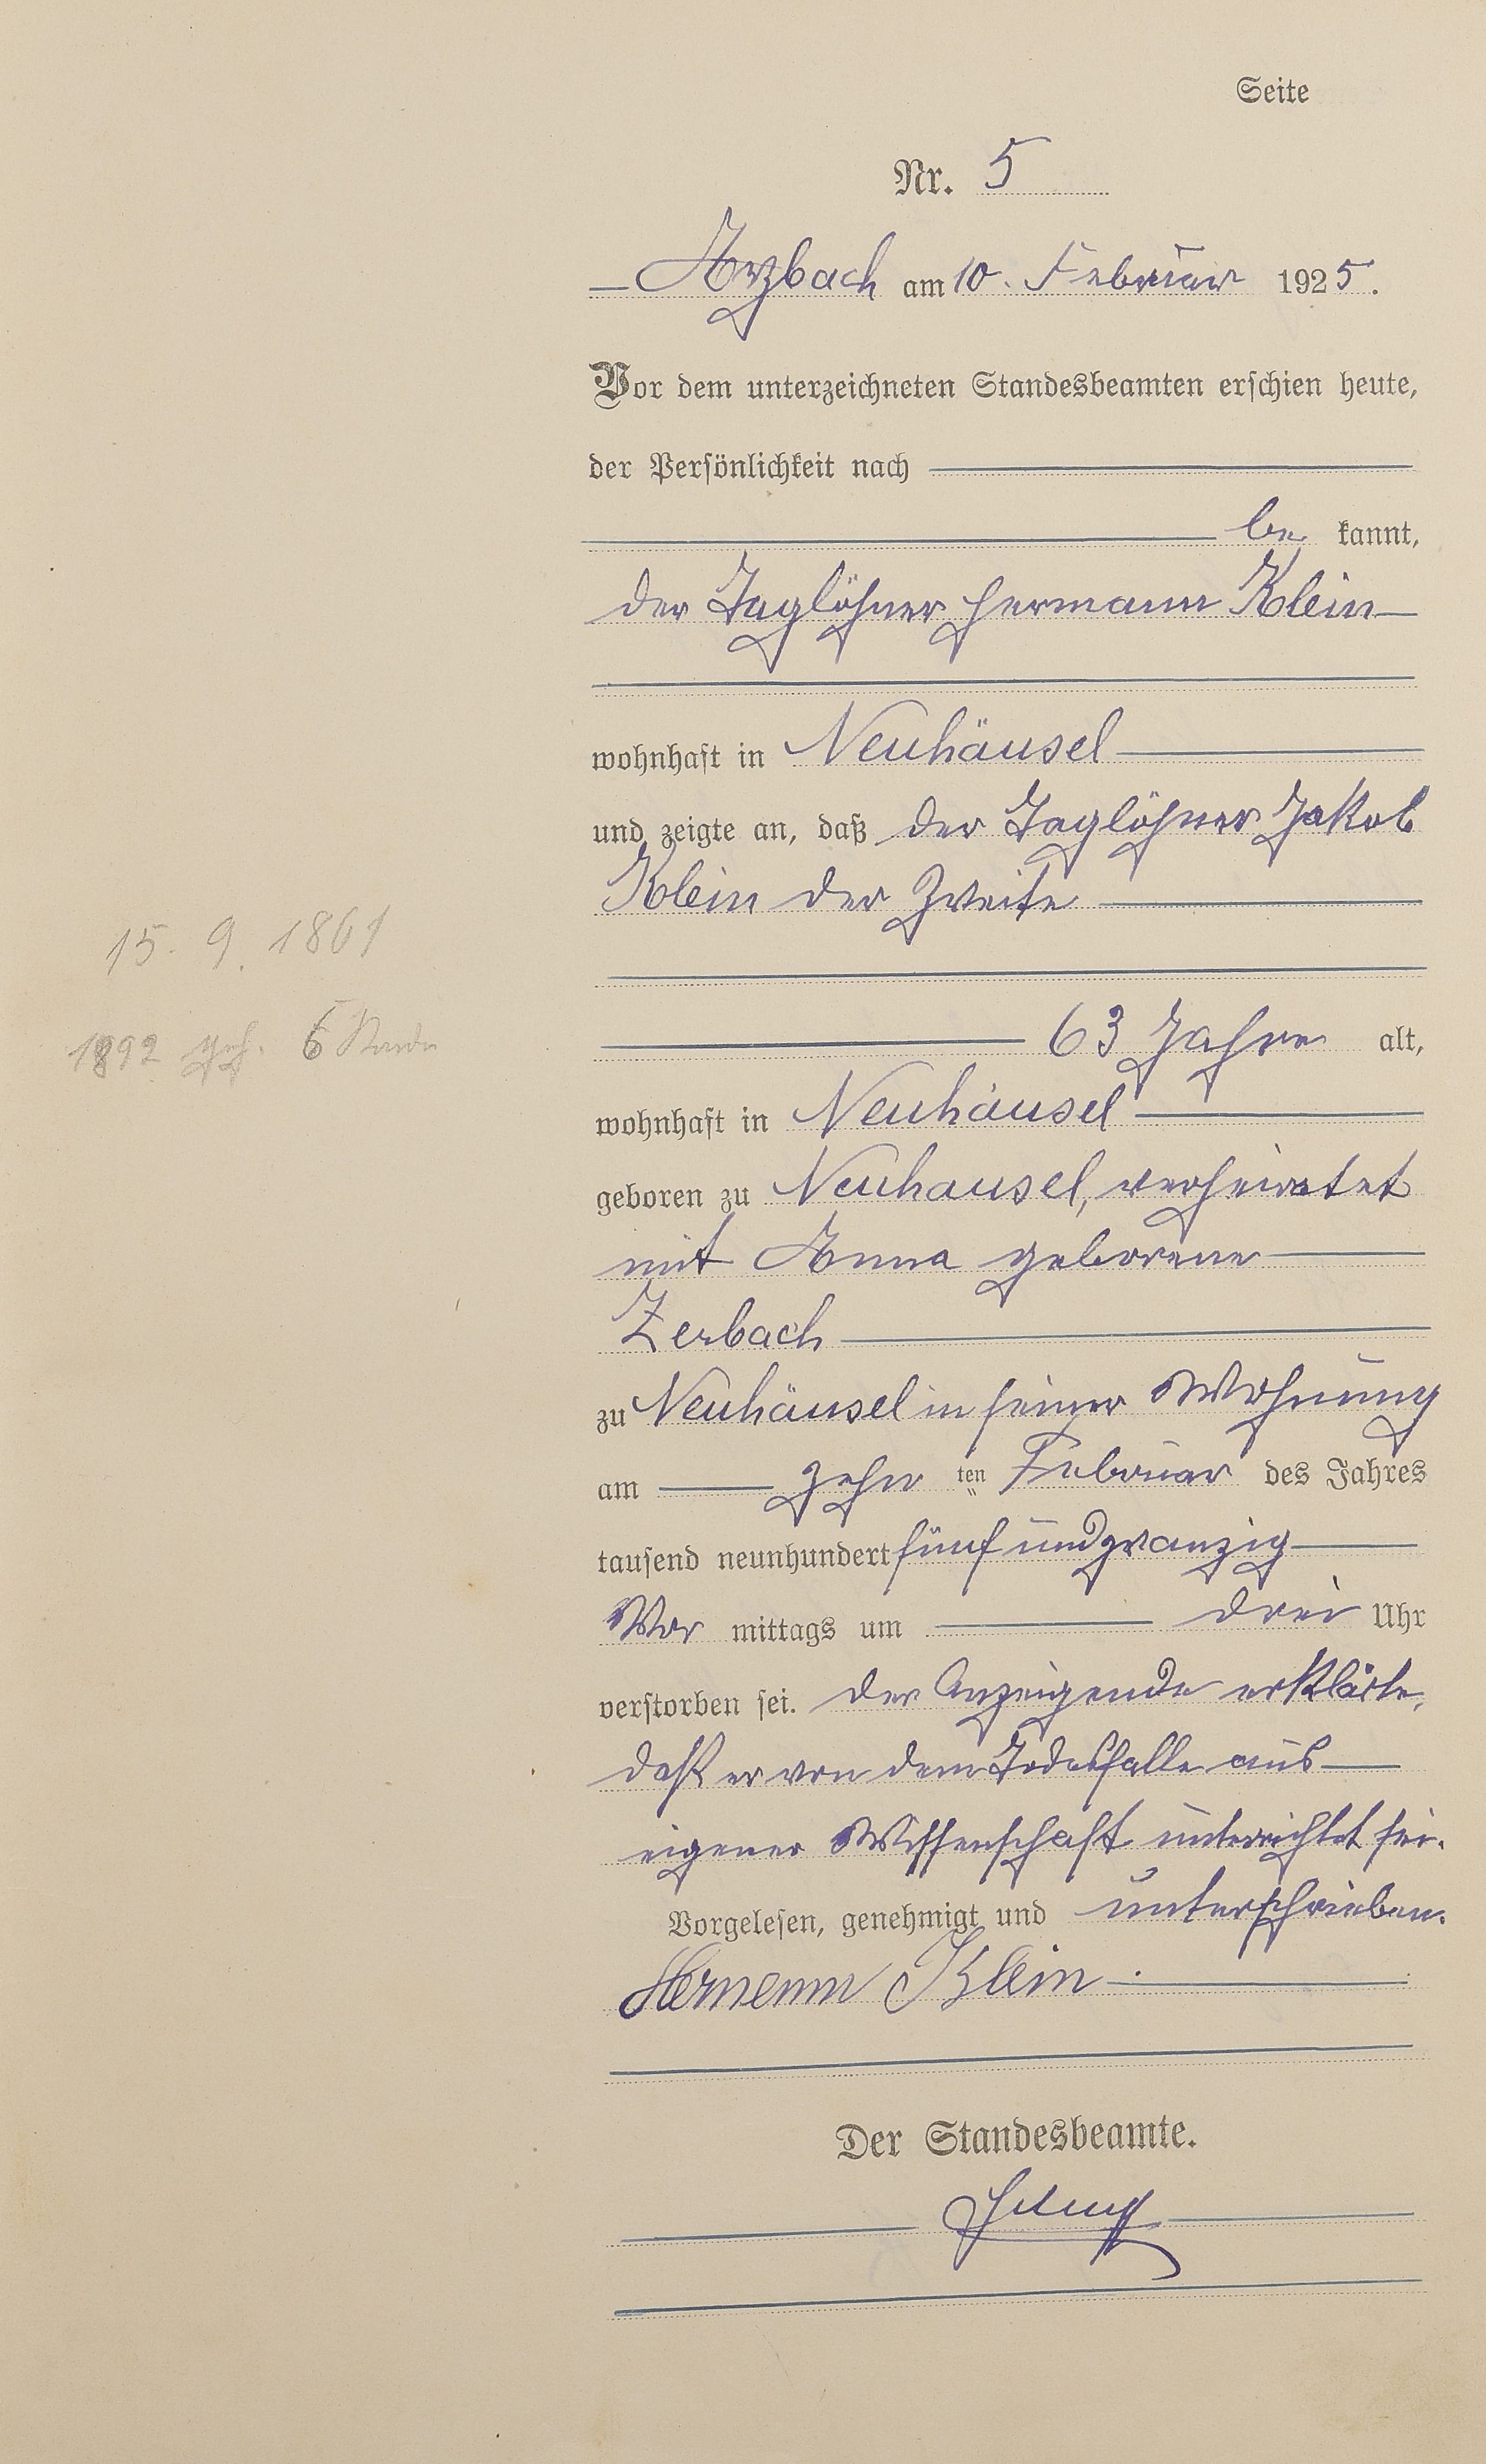 Seite
Nr. 5
Arzbach am 10. Februar 1925.
Vor dem unterzeichneten Standesbeamten erschien heute,
der Persönlichkeit nach
be kannt,
der Taglöhner Hermann Klein
wohnhaft in Neuhäusel
und zeigte an, daß der Taglöhner Jakob
Klein der Zweite
15. 9. 1861
63 Jahre alt,
1892 geh. 6
wohnhaft in Neuhäusel
geboren zu Neuhausel, verheiratet
mit Anna geborene
Zerbach
zu Neuhäusel in seiner Wohnung
am zehn ten Februar des Jahres
tausend neunhundert fünf und zwanzig
Vor mittags um drei Uhr
verstorben sei. Der Anzeigende erklärte,
daß er von dem Todesfalle aus
eigener Wissenschaft unterrichtet sei.
Vorgelesen, genehmigt und unterschrieben.
Hermann Klein
Der Standesbeamte.